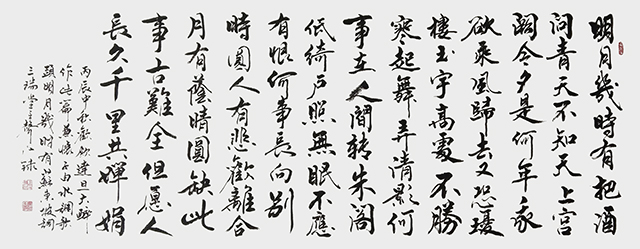 明月幾時有把酒
問青天不知天上宮
闕今夕是何年我
欲乘風歸去又恐瓊
樓玉宇高處不勝
寒起舞弄清影何
事在人間轉朱閣
低綺戶照無眠不應
有恨何事長向別
時圓人有悲歡離合
月有蔭晴圓缺此
事古難全但愿人
長久千里共嬋娟
丙辰中秋歡飲達旦大醉
作此篇兼懷子由水調歌
頭明月幾時有蘇東坡詞
三瑞堂主